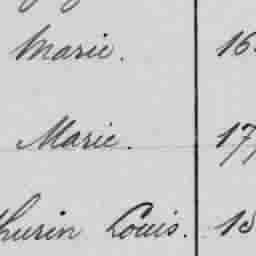 Marie. 16
Marie. 17
hurin Louis. 18